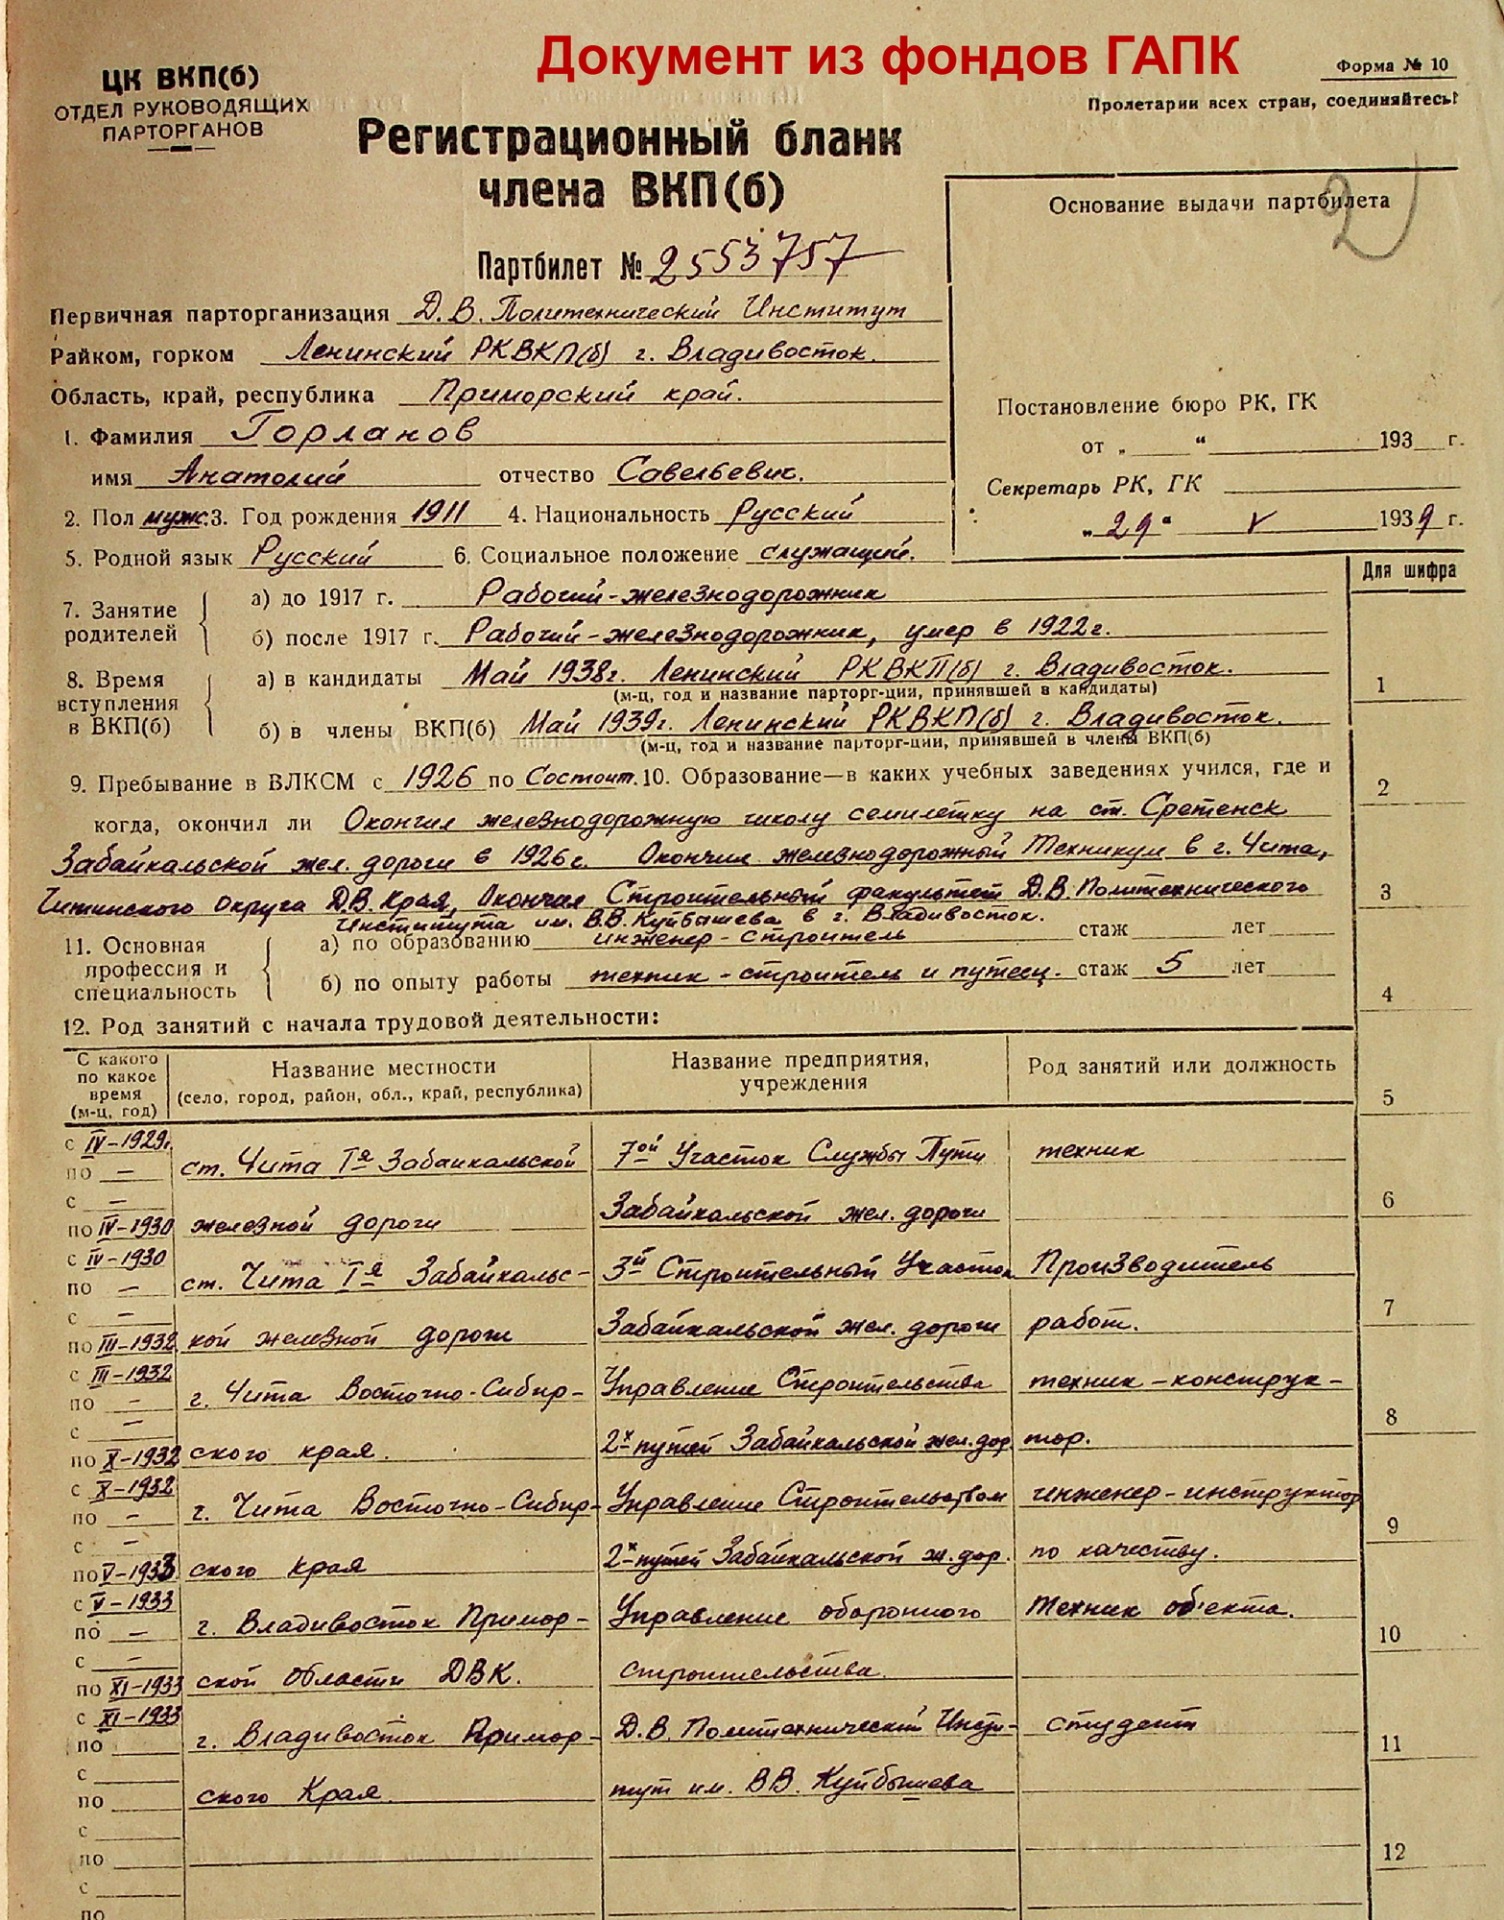 Документ из фондов ГАПК
ЦК ВКП(б)
ОТДЕЛ РУКОВОДЯЩИХ
ПАРТОРГАНОВ
Форма № 10
Пролетарии всех стран, соединяйтесь!
Регистрационный бланк
члена ВКП(б)
Партбилет № 2553757
Основание выдачи партбилета
2
Первичная парторганизация Д.В. Политехнический Институт
Райком, горком Ленинский РКВКП(б) г. Владивосток.
Область, край, республика Приморский край.
Постановление бюро РК, ГК
от „ “ 193 г.
Секретарь РК, ГК
„29“ V 1939 г.
1. Фамилия Горланов
имя Анатолий отчество Савельевич.
2. Пол муж. 3. Год рождения 1911 4. Национальность Русский
5. Родной язык Русский 6. Социальное положение служащий.
Для шифра
7. Занятие родителей
а) до 1917 г. Рабочий-железнодорожник
б) после 1917 г. Рабочий-железнодорожник, умер в 1922г.
8. Время вступления в ВКП(б)
а) в кандидаты Май 1938г. Ленинский РКВКП(б) г. Владивосток.
(м-ц, год и название парторг-ции, принявшей в кандидаты)
1
б) в члены ВКП(б) Май 1939г. Ленинский РКВКП(б) г. Владивосток.
(м-ц, год и название парторг-ции, принявшей в члены ВКП(б)
9. Пребывание в ВЛКСМ с 1926 по Состоит. 10. Образование—в каких учебных заведениях учился, где и
2
когда, окончил ли Окончил железнодорожную школу семилетку на ст. Сретенск
Забайкальской жел. дороги в 1926г. Окончил железнодорожный Техникум в г. Чита,
Читинского округа Д.В. Края, Окончил Строительный факультет Д.В. Политехнического
3
Института им. В.В. Куйбышева в г. Владивосток.
11. Основная профессия и специальность
а) по образованию инженер-строитель стаж лет
б) по опыту работы техник-строитель и путеец. стаж 5 лет
4
12. Род занятий с начала трудовой деятельности:
С какого по какое время (м-ц, год)
Название местности
(село, город, район, обл., край, республика)
Название предприятия, учреждения
Род занятий или должность
5
с IV-1929г. по — ст. Чита Iя Забайкальской 7ой Участок Службы Пути техник
6
с — по IV-1930 железной дороги Забайкальской жел. дороги
с IV-1930 по — ст. Чита Iя Забайкальс- 3й Строительный Участок Производитель
7
с — по III-1932 кой железной дороги Забайкальской жел. дороги работ.
с III-1932 по — г. Чита Восточно-Сибир- Управление Строительства техник-конструк-
8
с — по X-1932 ского края. 2х путей Забайкальской жел. дор. тор.
с X-1932 по — г. Чита Восточно-Сибир- Управление Строительством инженер-инструктор
9
с — по V-1933 ского края 2х путей Забайкальской ж. дор. по качеству.
с V-1933 по — г. Владивосток Примор- Управление оборонного Техник об'екта.
10
с — по XI-1933 ской области ДВК. строительства.
с XI-1933 по г. Владивосток Примор- Д.В. Политехнический Инсти- студент
11
с по ского Края. тут им. В.В. Куйбышева
с
по
12
с
по